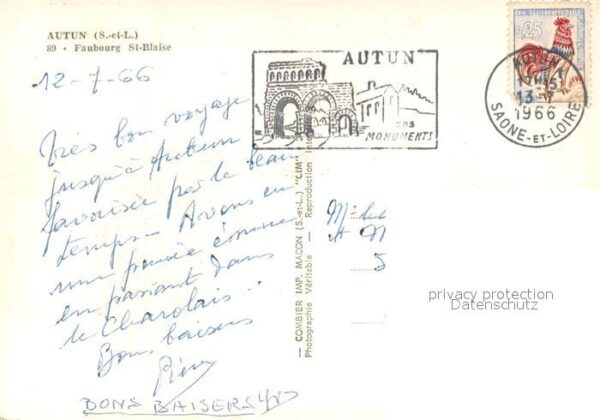 AUTUN (S.-et-L.)
89 - Faubourg St-Blaise
12-7-66
AUTUN
SES
MONUMENTS
0,25
13-7
1966
SAONE-ET-LOIRE
Très bon voyage
jusqu'à Autun
favorisée par le beau
temps - Avons eu
une pensée émue
en passant dans
le Charolais..
Bons baisers
BONS BAISERS
— COMBIER IMP. MACON (S.-et-L.) "CIM"
Photographie Véritable - Reproduction
privacy protection
Datenschutz